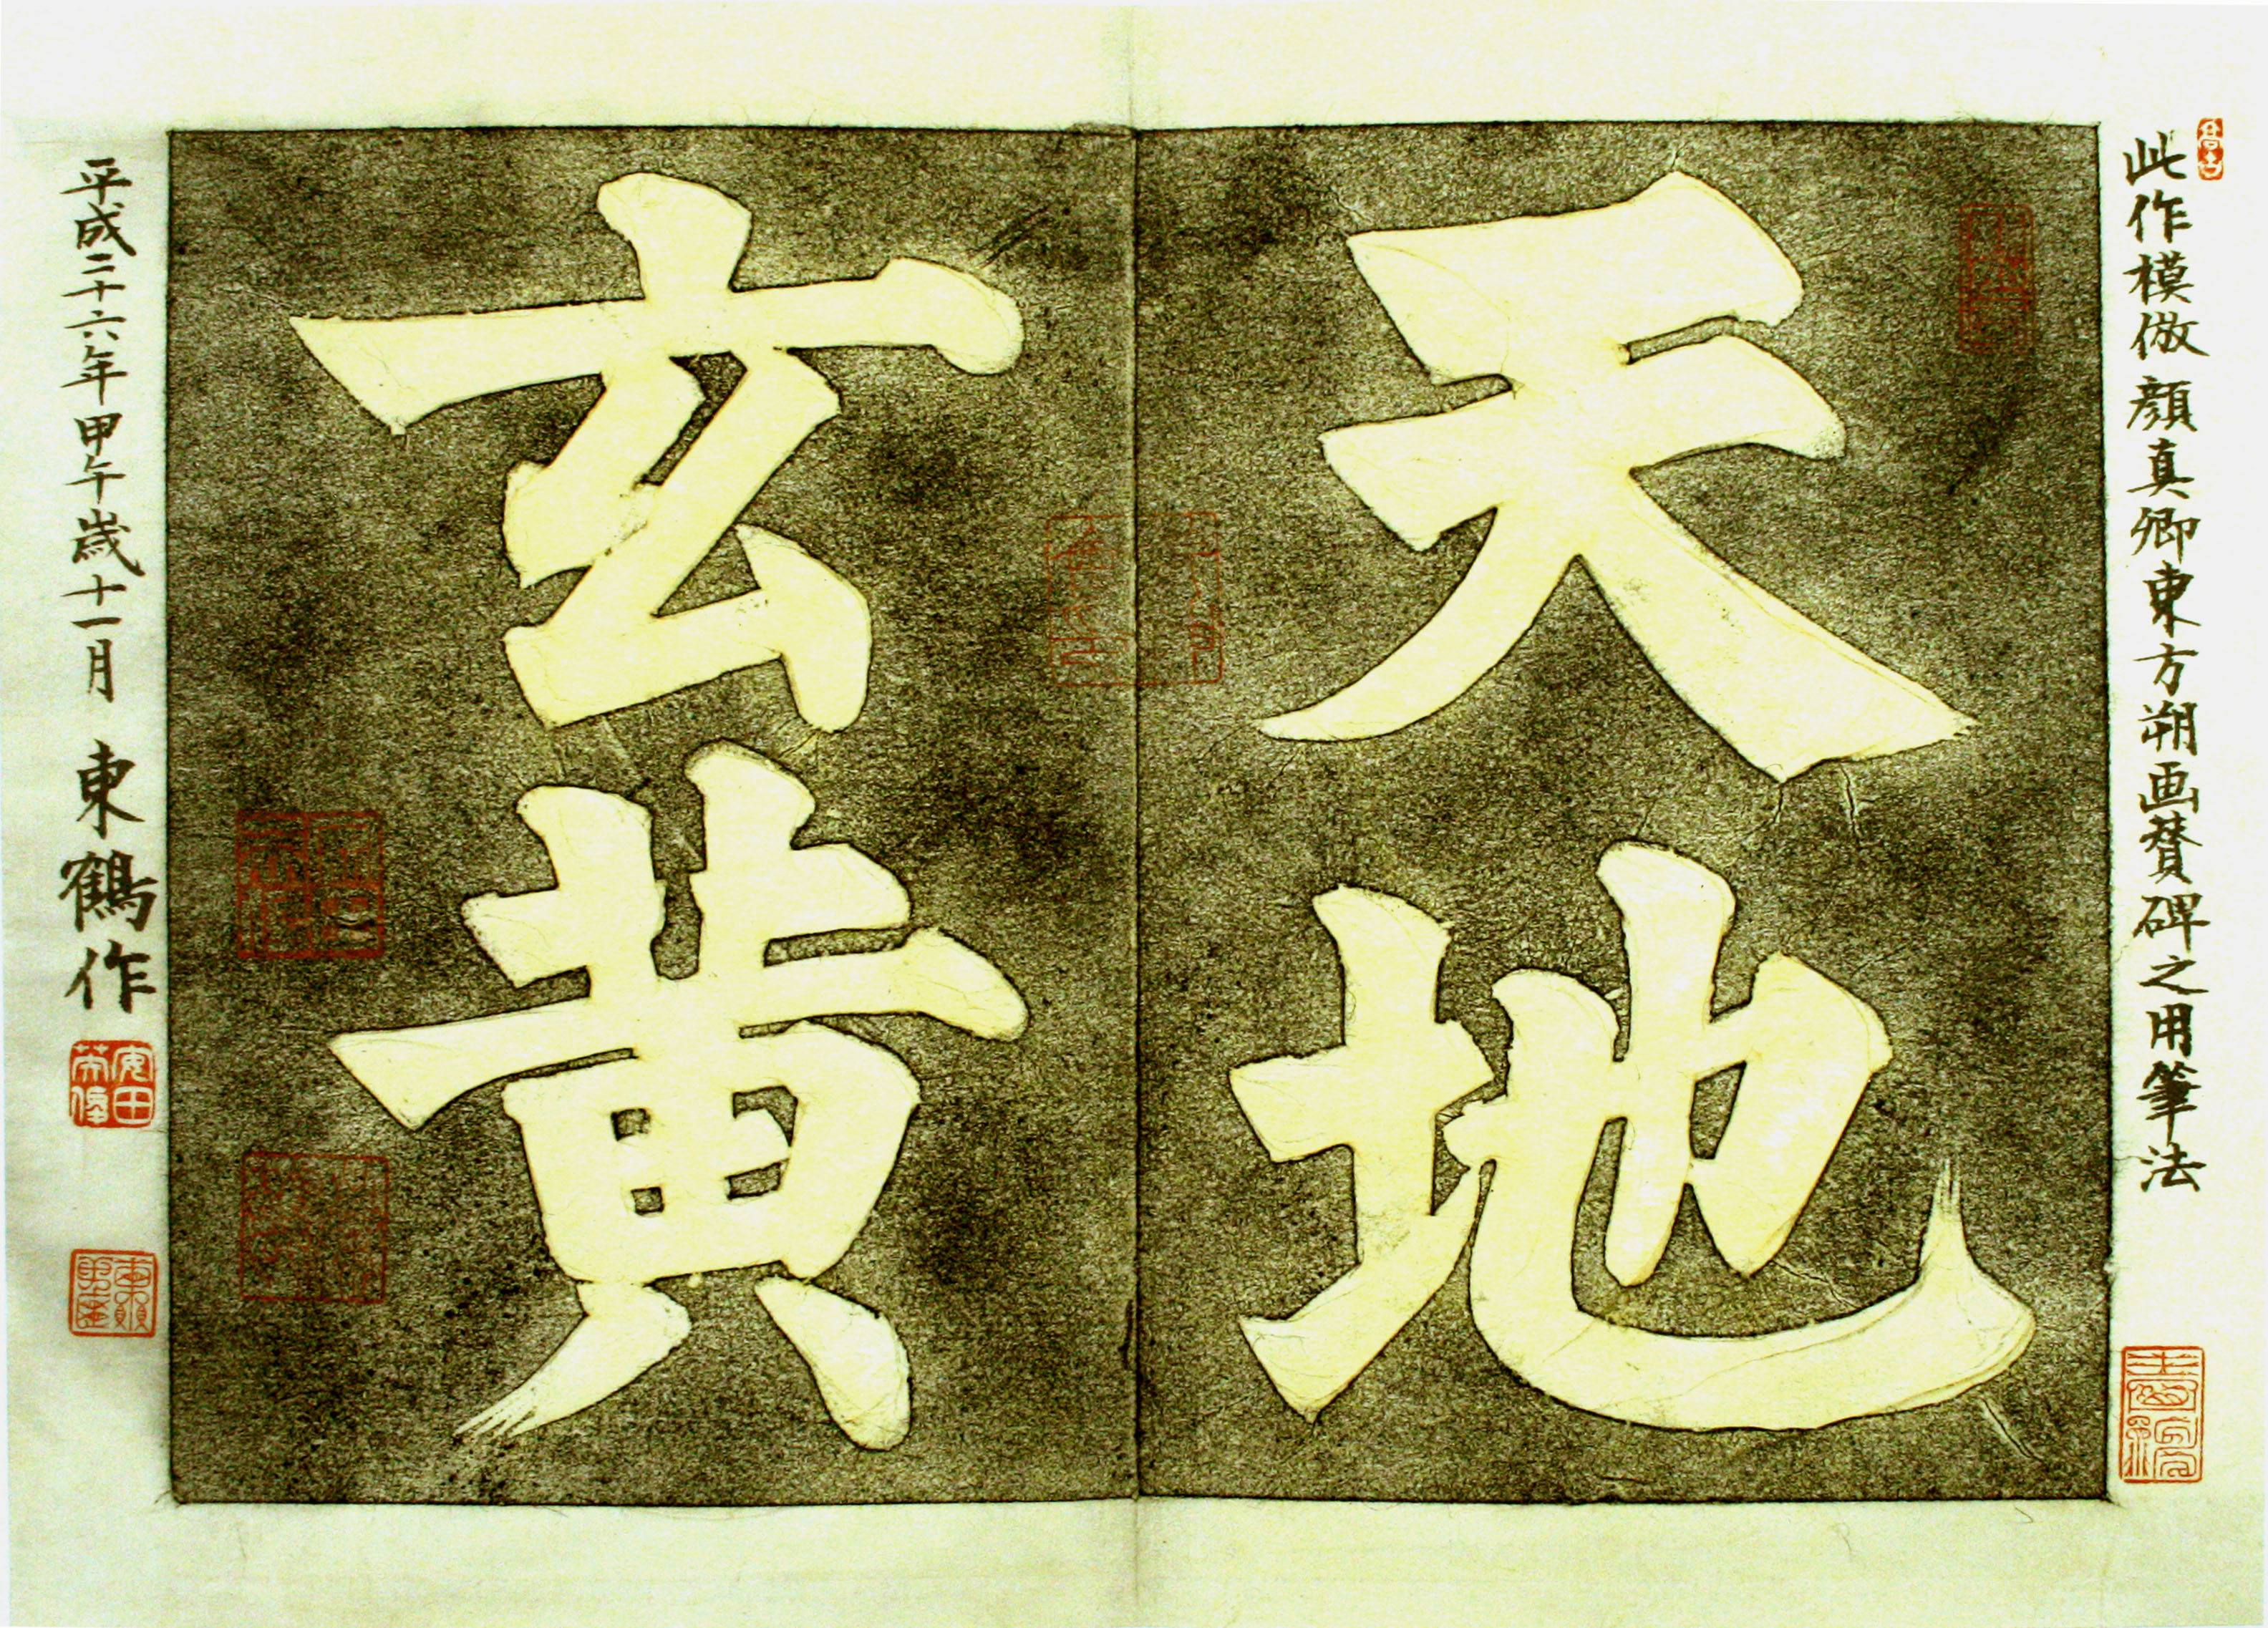 此作模倣顔真卿東方朔画賛碑之用筆法
天地
玄黄
平成二十六年甲午歳十一月 東鶴作
安田